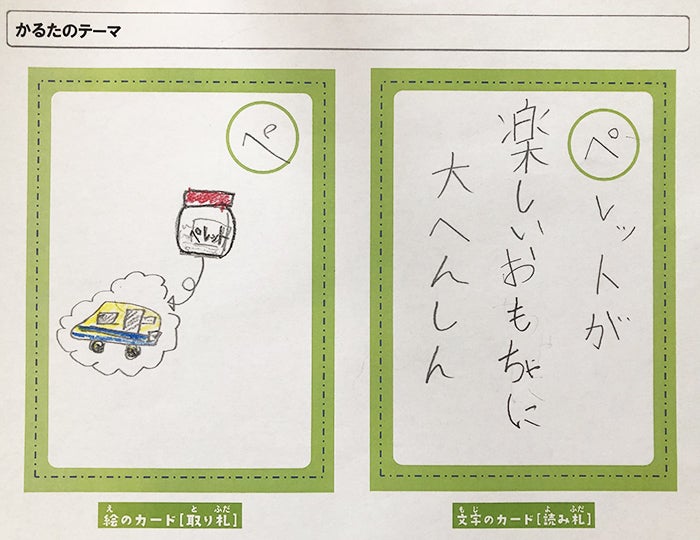 かるたのテーマ
ぺ
ペレット
絵のカード[取り札]
え と ふだ
ペ
レットが
楽しいおもちゃに
大へんしん
文字のカード[読み札]
もじ よ ふだ